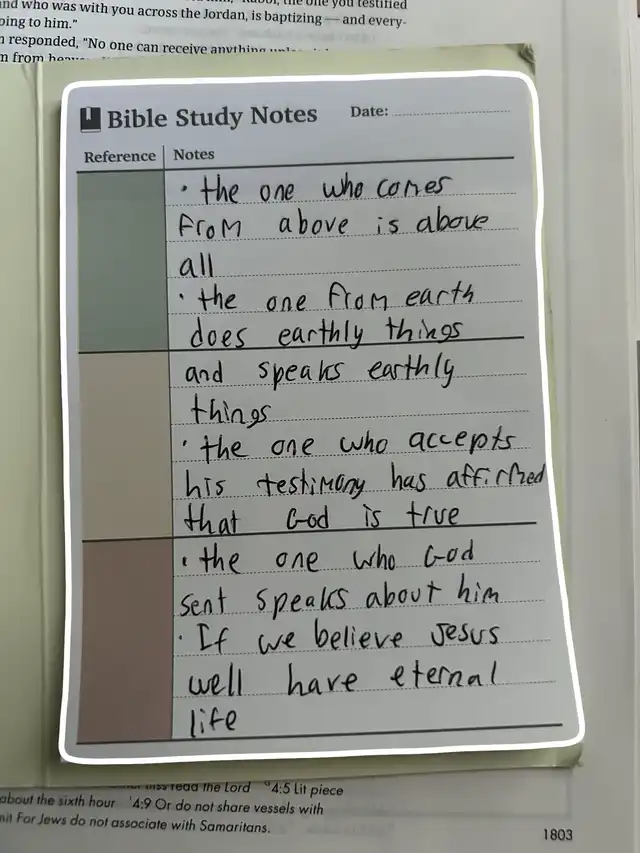 and who was with you across the Jordan, is baptizing — and every-
to him."
responded, "No one can receive anything
n from
Bible Study Notes Date:
Reference Notes
· the one who comes
from above is above
all
· the one from earth
does earthly things
and speaks earthly
things
· the one who accepts
his testimony has affirmed
that God is true
· the one who God
sent speaks about him
· If we believe Jesus
well have eternal
life
read the Lord 4:5 Lit piece
about the sixth hour 4:9 Or do not share vessels with
For Jews do not associate with Samaritans.
1803